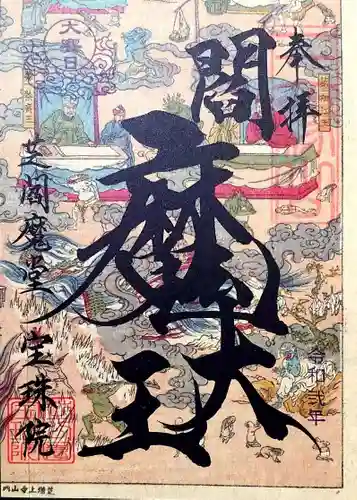 奉拝
閻魔大王
令和弐年
大齋日
芝閻魔堂 宝珠院
芝増上寺山内